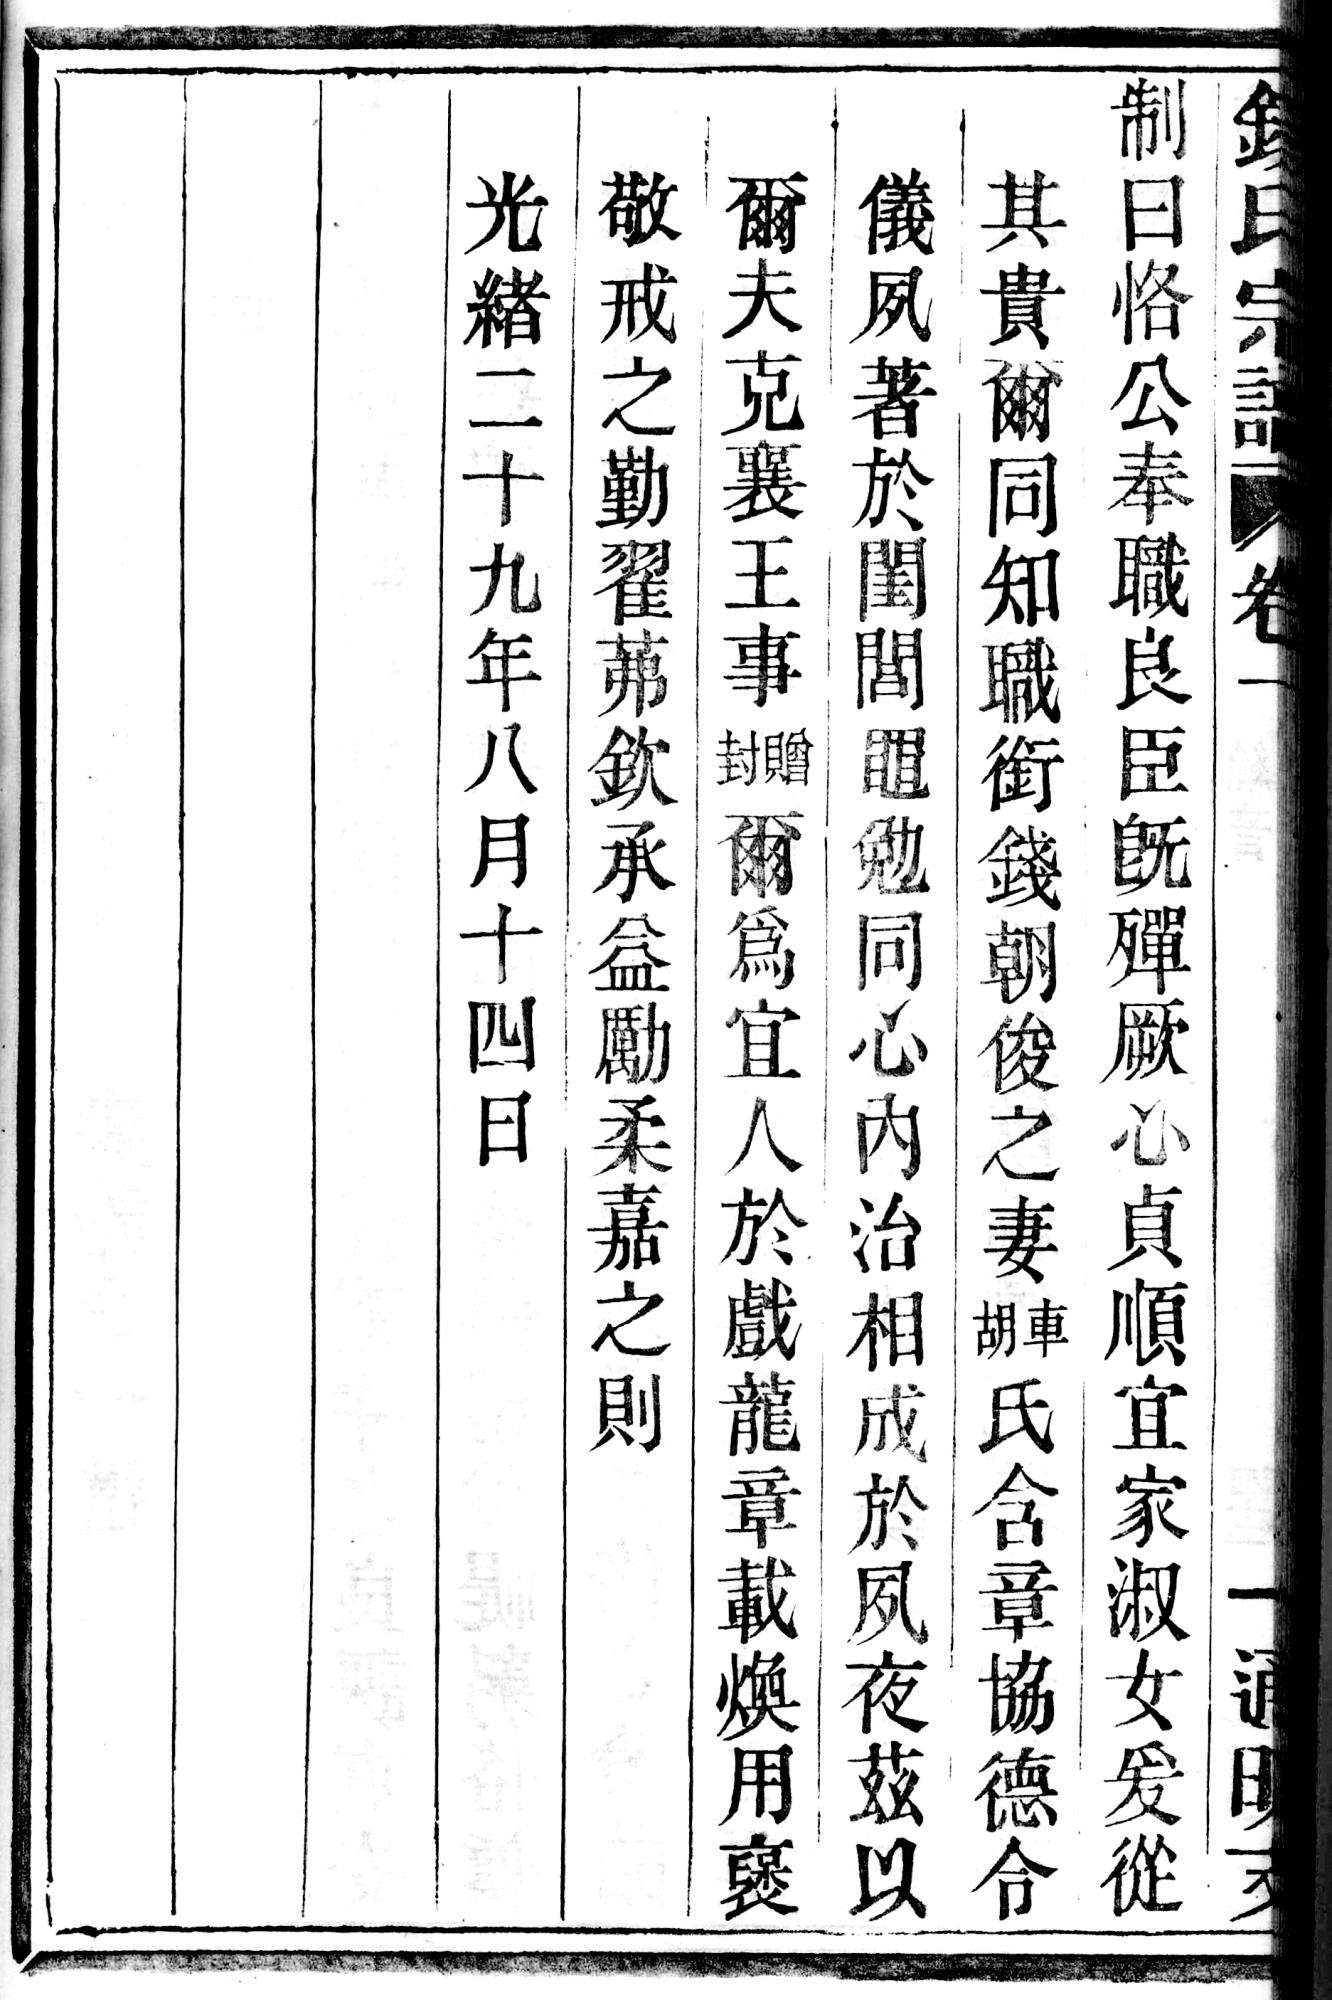 錢氏宗譜 卷一 一 通明
制曰恪公奉職良臣旣殫厥心貞順宜家淑女爰從
其貴爾同知職銜錢朝俊之妻車胡氏含章協德令
儀夙著於閨閤黽勉同心內治相成於夙夜茲以
爾夫克襄王事贈封爾爲宜人於戲龍章載煥用襃
敬戒之勤翟茀欽承益勵柔嘉之則
光緒二十九年八月十四日